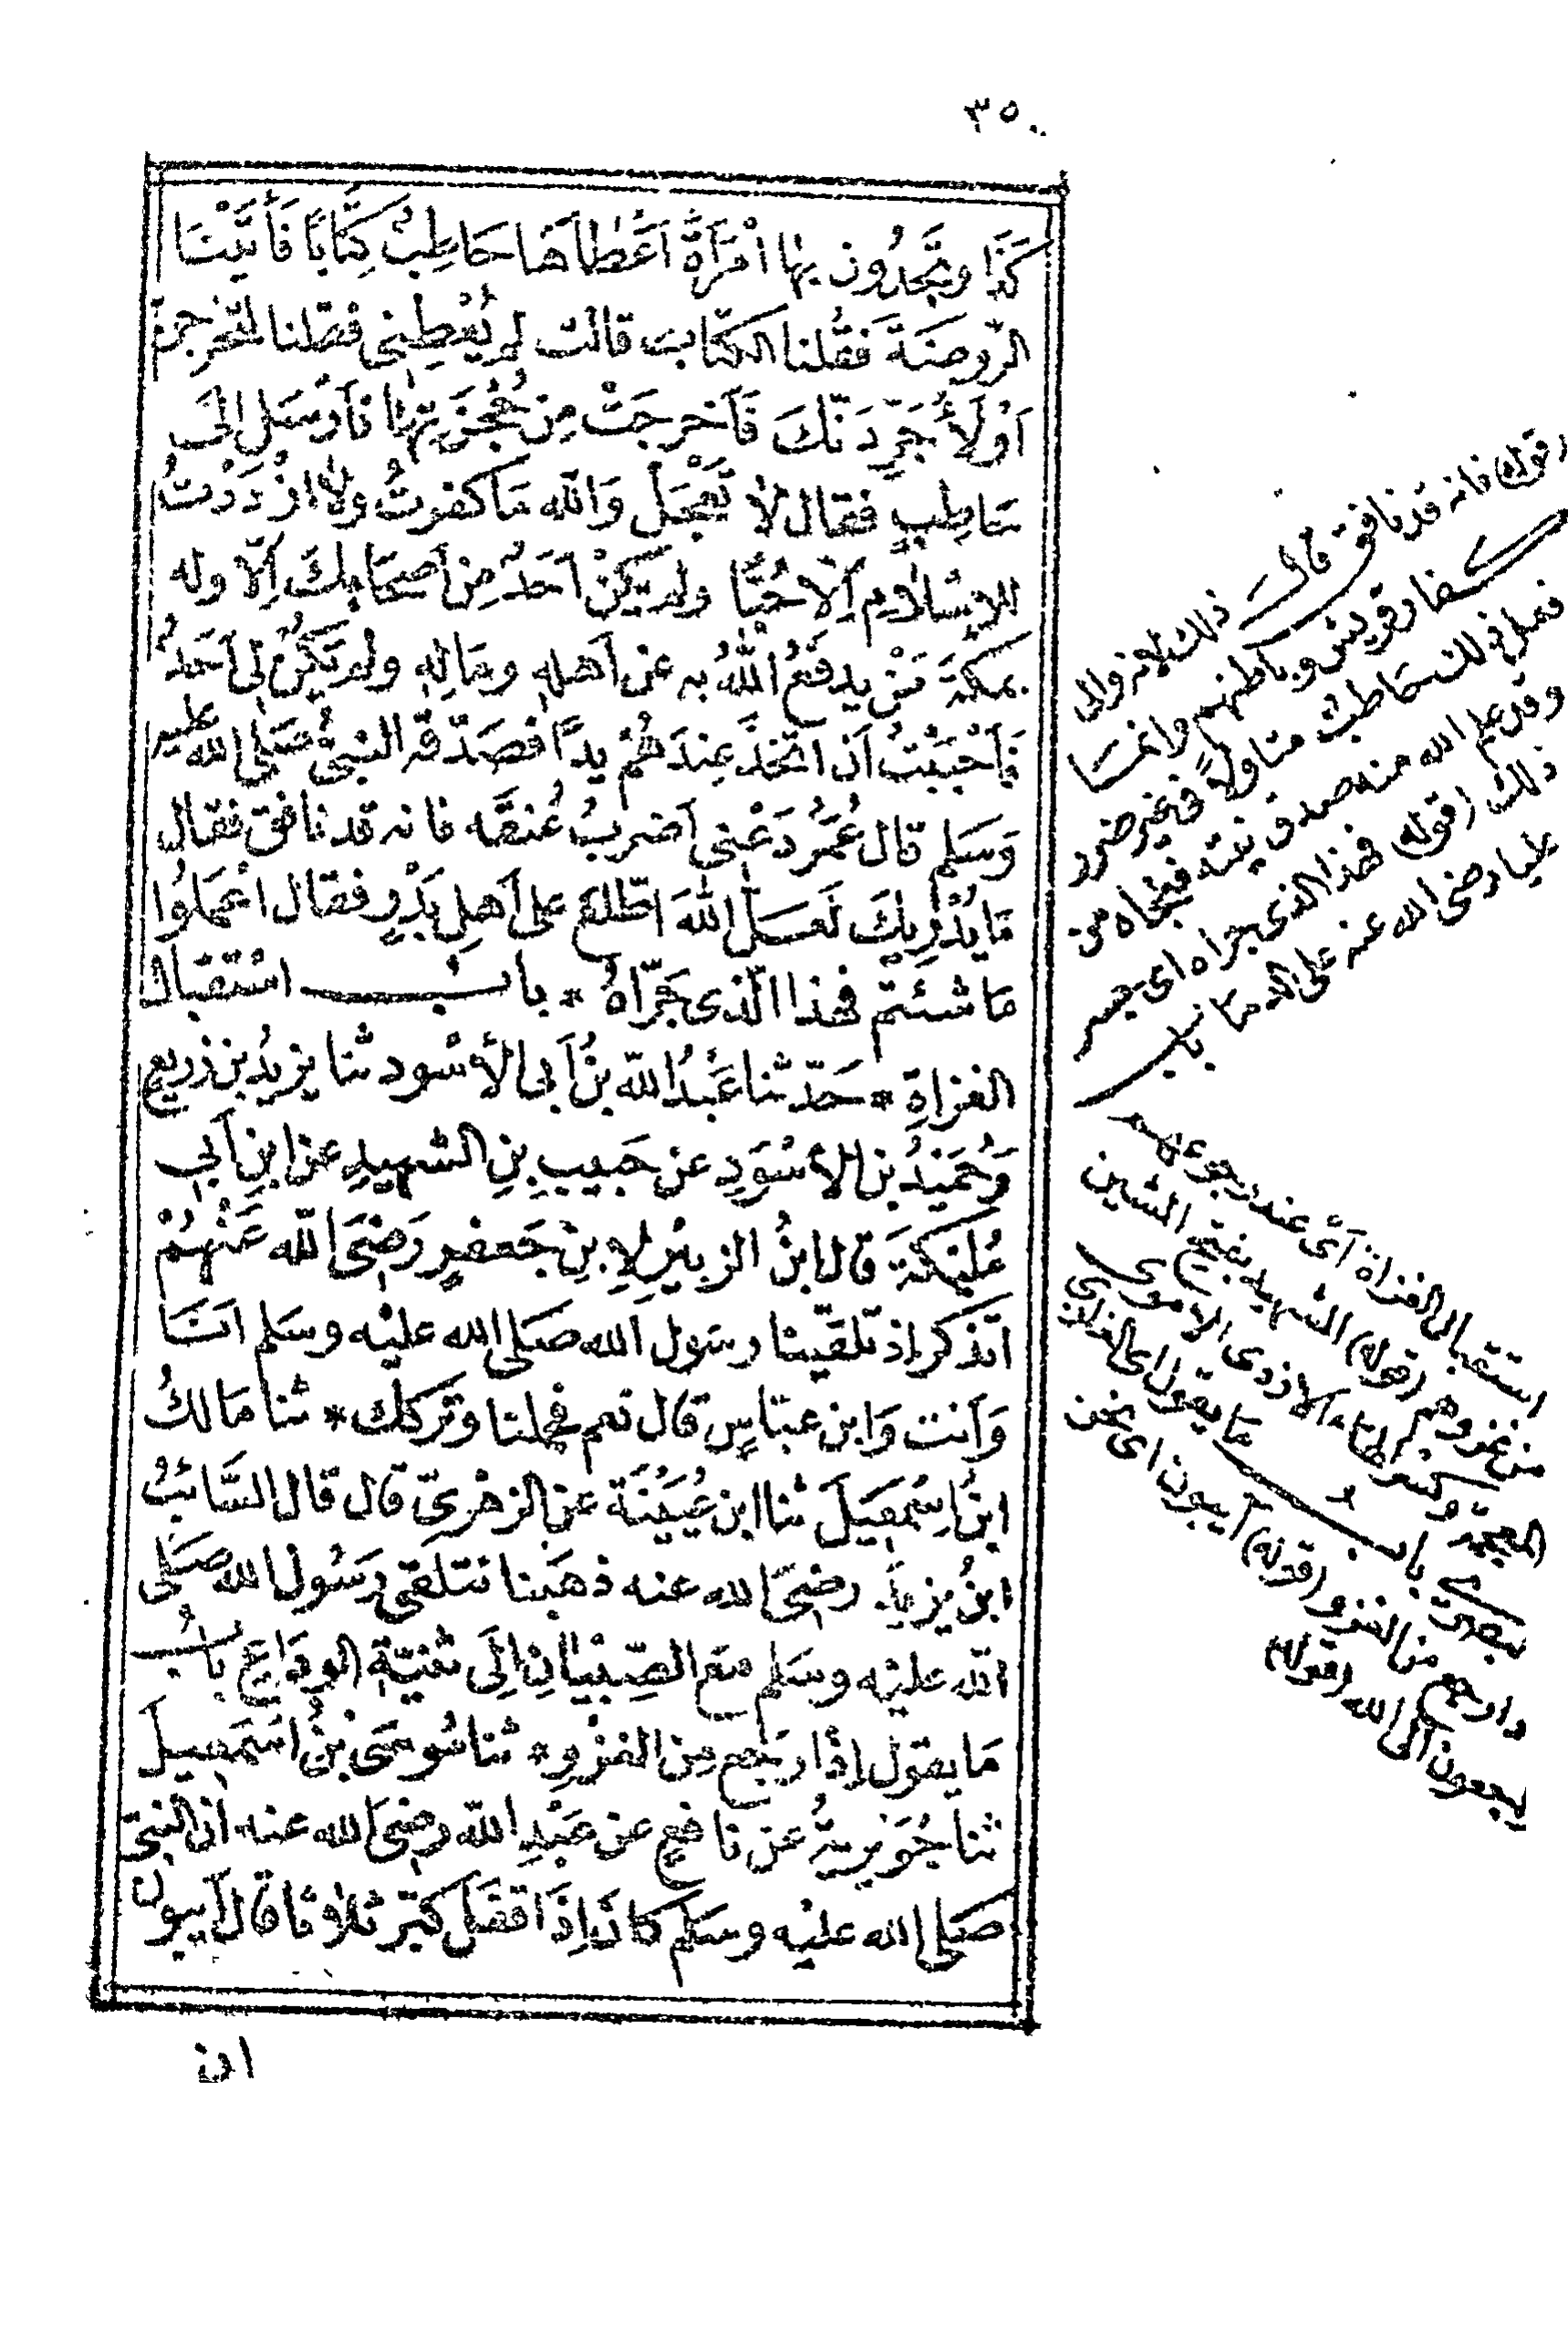 ٣٥٠
كَذَا وتَجِدُون بها امْرَأَةً اَعْطاهَا حَاطِبٌ كِتَابًا فَأَتَيْنَا
الرّوضَةَ فَقُلنا الكتَابَ قالت لم يُعْطِنِى فقلنا لتخرجِنّ
اَوْلَأُجَرِّدَنَّكَ فَأَخرجَتْ مِن حُجْزَتِهَا فأرسَل اِلَى
حَاطِبٍ فقال لاَ تَعْجَلْ وَالله مَا كفرتُ ولاَ ازْدَدْتُ
للاِسْلاَمِ اِلّا حُبًّا ولم يَكُنْ اَحَدٌ مِن اَصحَابِكَ اِلّا وله
بمكةَ مَنْ يدفَعُ اللهُ به عن اَهلِهِ ومَالِهِ ولم يَكُنْ لى اَحَدٌ
فَاَحْبَبْتُ اَن اتّخذَ عِندَهُمْ يدًا فصَدّقه النبىُّ صَلى الله عليه
وَسَلم قال عُمَرُ دَعْنِى اَضربُ عُنقَه فانه قد نافق فقال
مَا يُدْرِيكَ لَعَسَلّ اللهَ اطّلعَ على اَهلِ بَدْرٍ فقال اعْمَلُوا
مَا شئتم فهذا الّذى جَرّاهُ * بابُ استقبال
الغزاةِ * حَدّثنا عَبْدُ الله بنُ اَبى الأسْود ثنا يزيدُ بن زريعٍ
وَحُمَيْدُ بن الأسْوَدِ عن حَبيبِ بنِ الشهيدِ عن ابنِ اَبى
مُلَيْكَةَ قال ابنُ الزبيْرِ لاِبنِ جَعفرٍ رَضىَ الله عَنْهُمْ
اتذكر اذ تلقّينا رسول الله صَلى الله عليْه وسَلم انَا
وَاَنت وَابن عبّاسٍ قال نعم فحملنا وتركك * ثنا مَالكُ
ابنُ اِسْمعيلَ ثنا ابن عُيَيْنَة عن الزهْرىّ قال قال السَّائبُ
ابنُ يزيدَ رضىَ الله عنه ذهَبنا نتلقى رَسُول الله صَلى
الله عليْه وسَلم مَع الصِّبْيَانِ اِلَى ثنيّةِ الودَاعِ بابُ
مَا يقول اِذا رجَع مِن الغزْوِ * ثنا مُوسَى بْنُ اسْمَعيلَ
ثنا جُوَيْرِيةُ عن نافعٍ عن عَبْدِ الله رضىَ الله عنه اَن النبىّ
صَلى الله عليْه وسَلم كانَ اِذَا قفَلَ كبّر ثلاثا قال آيبون
ان
(قوله فانه قد نافق قال ذلك لانه والى
كفار قريش وباطنهم وانما
فعل ذلك حاطب متاولاً فى غير ضرر
وقد علم الله منه صدق نيته فنجاه من
ذلك (قوله فهذا الذى جراه اى جسر
عليا رضى الله عنه على الدماء
باب
استقبال الغزاة اَى عند رجوعهم
من غزوهم (قوله) الشهيد بفتح الشين
المعجمة وكسر الهاء الازدى الاموى
البصرى باب ما يقول اى الغازى
اذا رجع من الغزو (قوله) آيبون اى نحن
راجعون الى الله (قوله